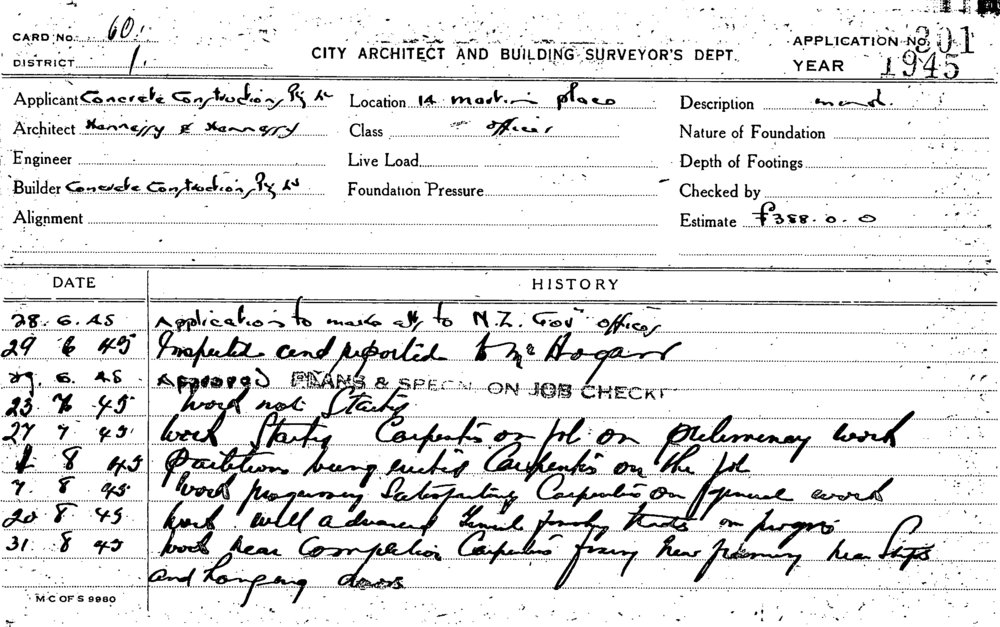 CARD No. 60.
DISTRICT 1.
CITY ARCHITECT AND BUILDING SURVEYOR'S DEPT.
APPLICATION No. 301
YEAR 1945
Applicant Concrete Constructions Pty Ld
Location 14 martin place
Description
Architect Hennessy & Hennessy
Class offices
Nature of Foundation
Engineer
Live Load
Depth of Footings
Builder Concrete Constructions Pty Ld
Foundation Pressure
Checked by
Alignment
Estimate £388.0.0
DATE HISTORY
28.6.45 Application to make to N.Z. Gov offices
29 6 45 Inspected and reported to Mr Hogan
29.6.45 Approved PLANS & SPECN. ON JOB CHECK
23 7 45 Work not Started
27 7 45 Work Started Carpenters on job on preliminary work
1 8 45 partitions being erected Carpenters on the job
7 8 45 Work progressing Satisfactory Carpenters on general work
20 8 45 Work well advanced on progress
31 8 45 Work near Completion Carpenters fixing
and hanging doors
M C OF S 9980